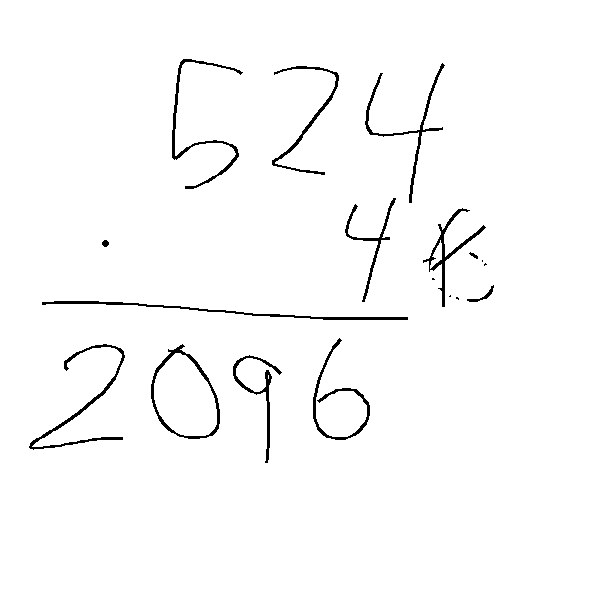 524
· 4
2096